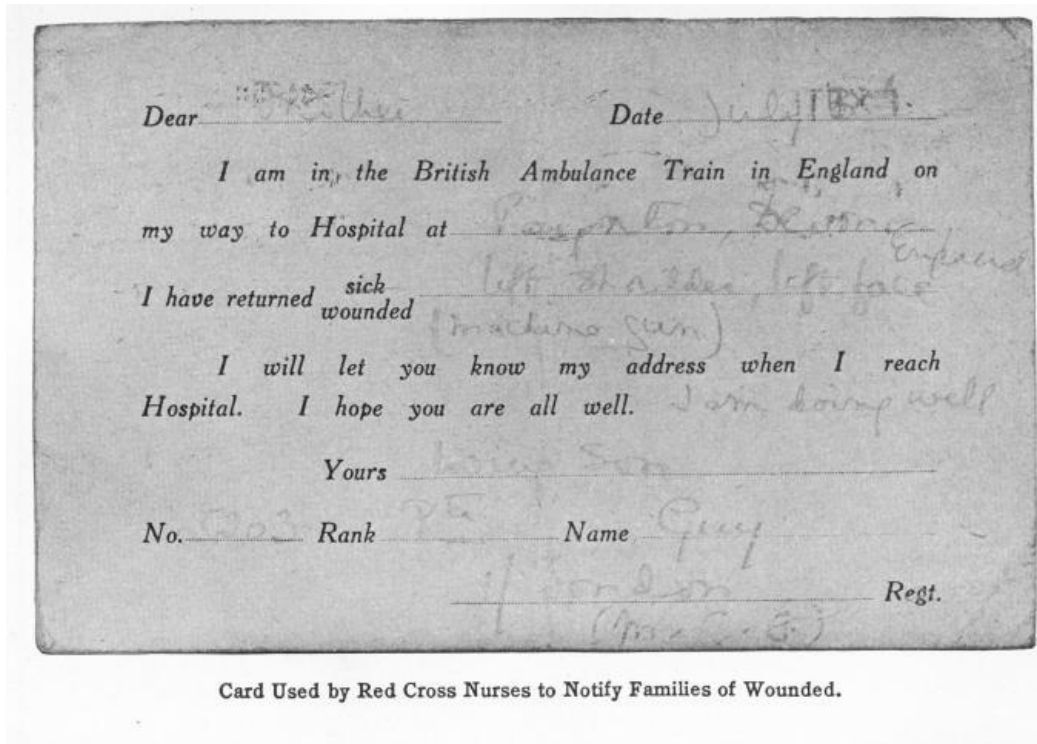 Dear Mother Date July
I am in the British Ambulance Train in England on
my way to Hospital at Paignton, Devon
England
I have returned sick wounded left shoulder, left face
(machine gun)
I will let you know my address when I reach
Hospital. I hope you are all well. I am doing well
Yours loving Son
No. Rank Pte Name Guy
London Regt.
Card Used by Red Cross Nurses to Notify Families of Wounded.